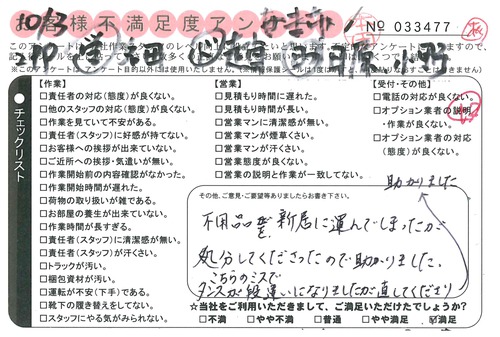 10/3
お客様不満足度アンケート
No 033477
●チェックリスト
【作業】
□責任者の対応(態度)が良くない。
□他のスタッフの対応(態度)が良くない。
□作業を見ていて不安がある。
□責任者(スタッフ)に好感が持てない。
□お客様への挨拶が出来ていない。
□ご近所への挨拶・気遣いが無い。
□作業開始前の内容確認がなかった。
□作業開始時間が遅れた。
□荷物の取り扱いが雑である。
□お部屋の養生が出来ていない。
□作業時間が長すぎる。
□責任者(スタッフ)に清潔感が無い。
□責任者(スタッフ)が汗くさい。
□トラックが汚い。
□梱包資材が汚い。
□運転が不安(下手)である。
□靴下の履き替えをしてない。
□スタッフにやる気がみられない。
【営業】
□見積もり時間に遅れた。
□見積もり時間が長い。
□営業マンに清潔感が無い。
□営業マンが煙草くさい。
□営業マンが汗くさい。
□営業態度が良くない。
□営業の説明と作業が一致してない。
【受付・その他】
□電話の対応が良くない。
□オプション業者の説明
・作業が良くない。
□オプション業者の対応
(態度)が良くない。
助かりました
その他、ご意見・ご要望等ありましたらお書き下さい。
不用品を新居に運んでしまったが
処分してくださったので助かりました。
こちらのミスで
タンスが段違いになりましたが直してくださり
☆当社をご利用いただきまして、ご満足いただけたでしょうか?
□不満 □やや不満 □普通 □やや満足 □満足